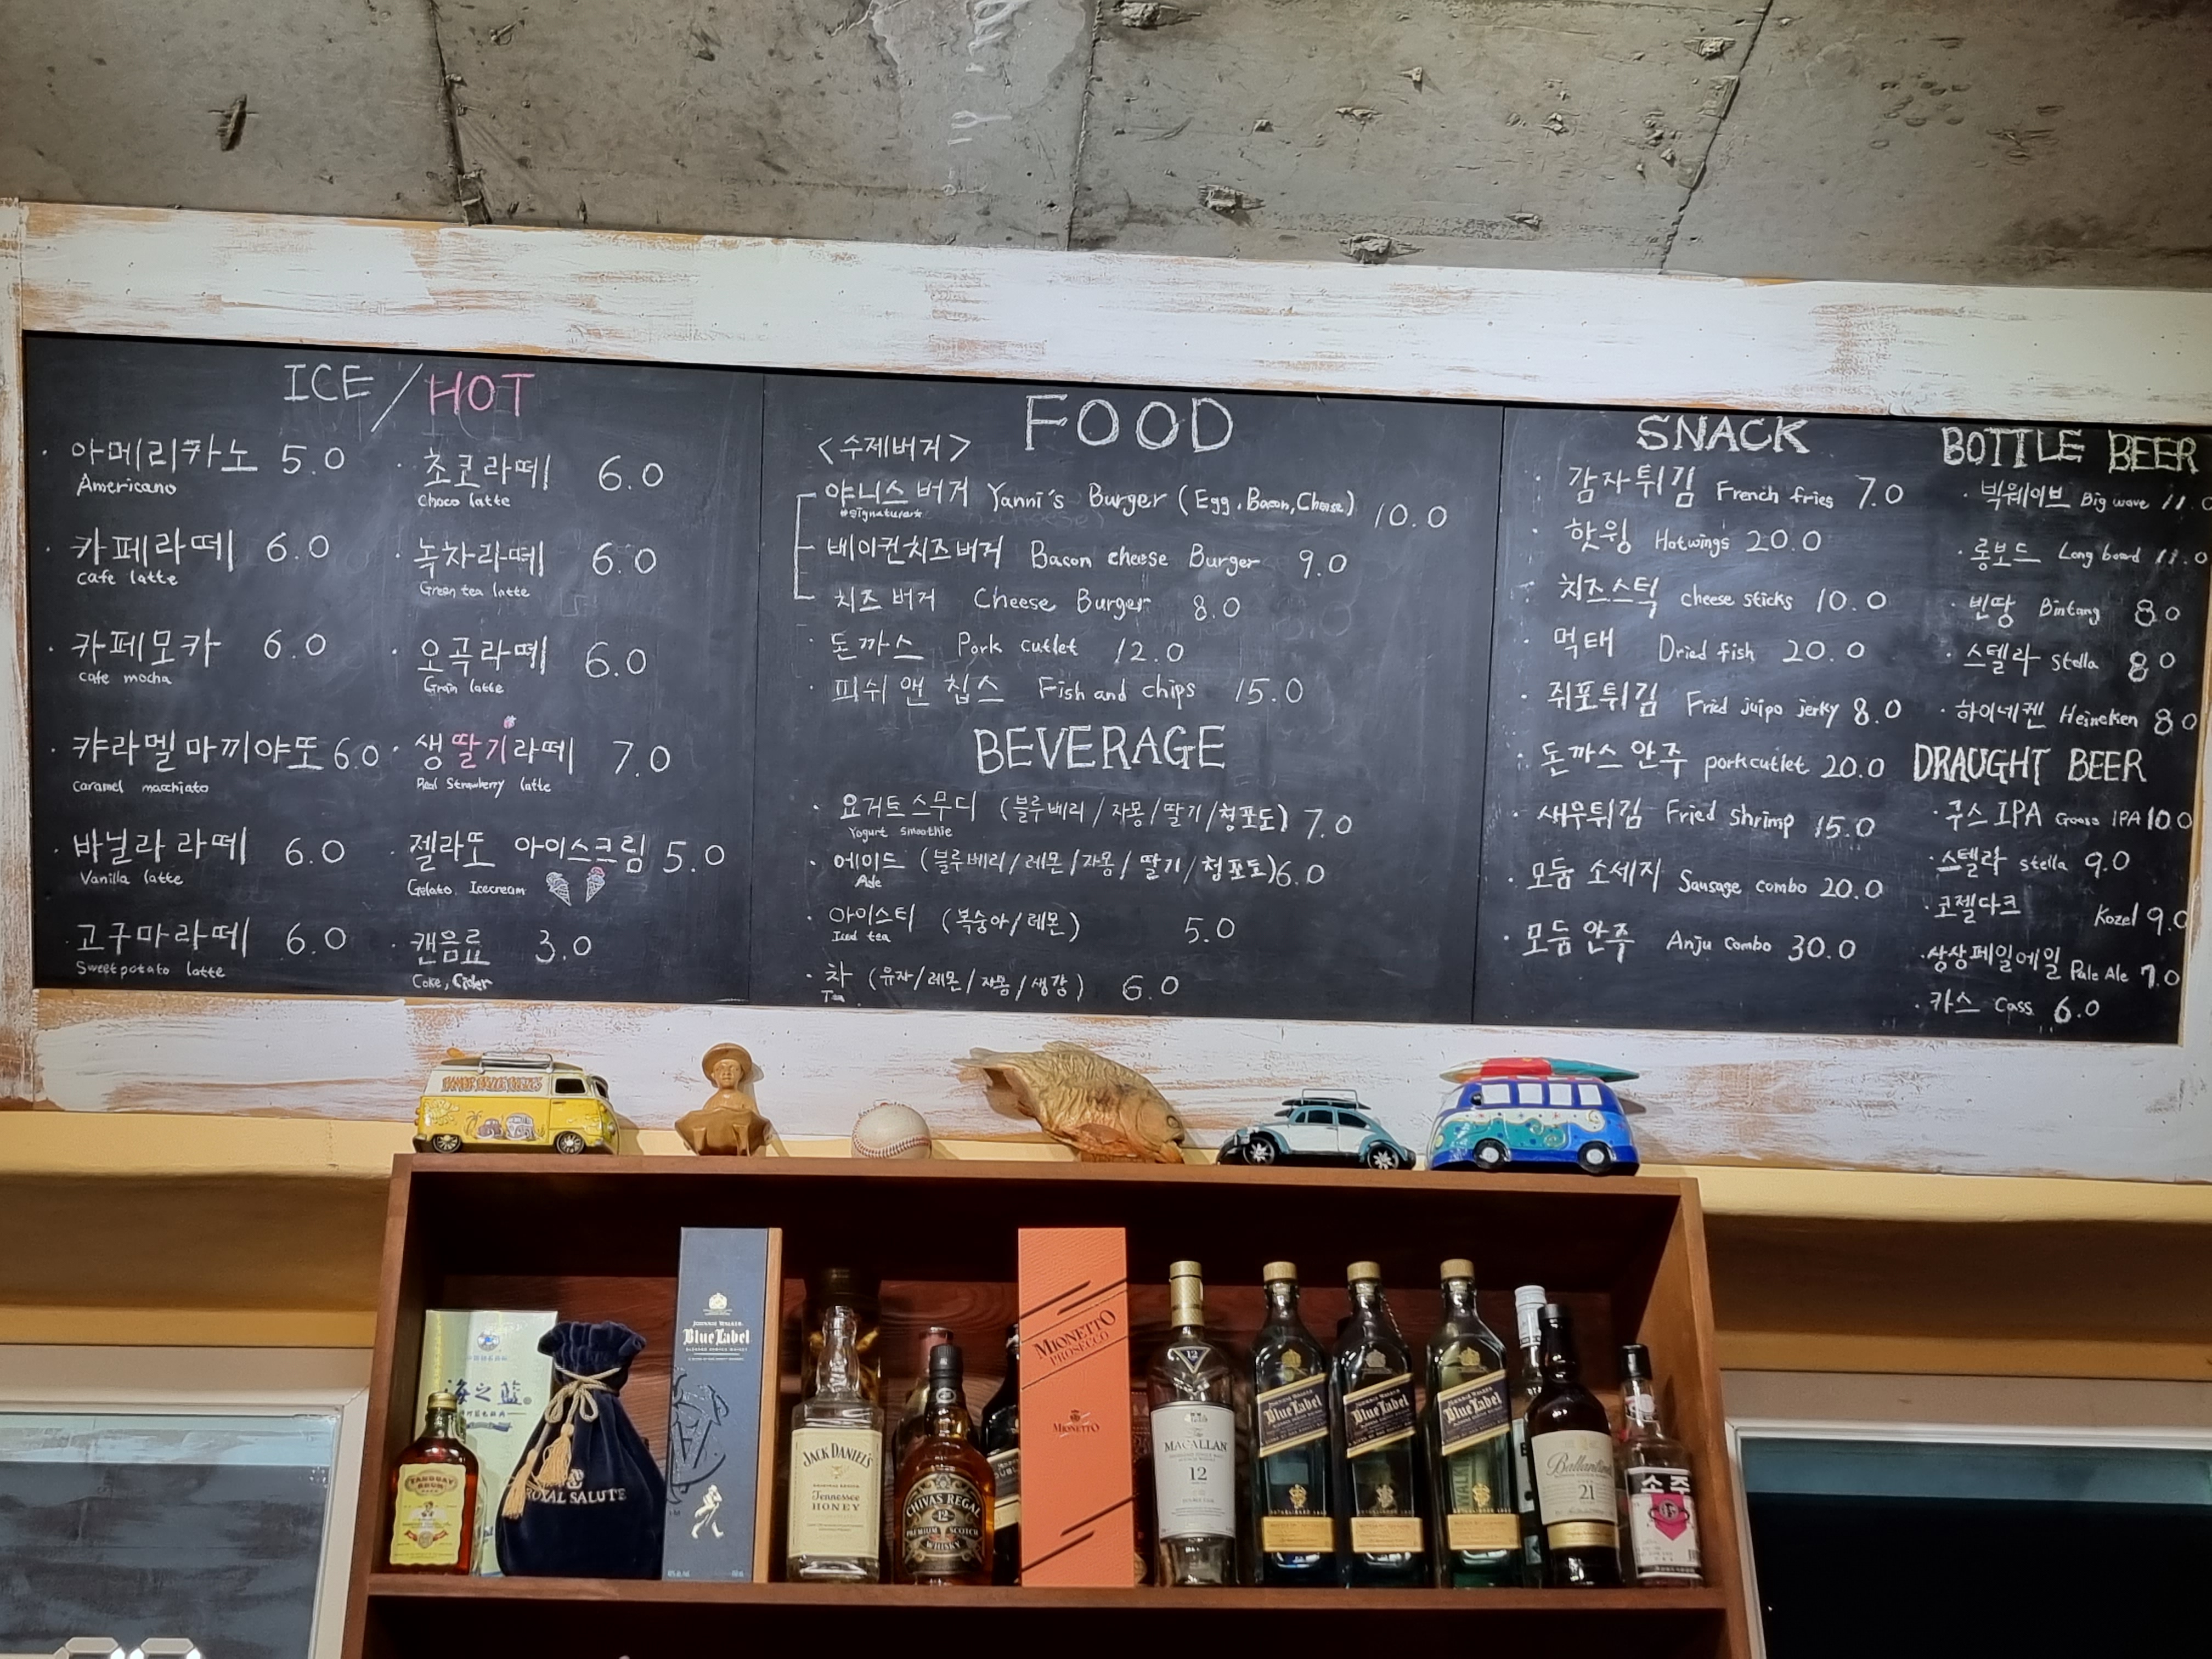 ICE / HOT
· 아메리카노 5.0
Americano
· 카페라떼 6.0
cafe latte
· 카페모카 6.0
cafe mocha
· 캬라멜마끼야또 6.0
caramel macchiato
· 바닐라 라떼 6.0
Vanilla latte
· 고구마라떼 6.0
Sweet potato latte
· 초코라떼 6.0
choco latte
· 녹차라떼 6.0
Green tea latte
· 오곡라떼 6.0
Grain latte
· 생딸기라떼 7.0
Real Strawberry latte
젤라또 아이스크림 5.0
Gelato Icecream
· 캔음료 3.0
Coke, Cider
FOOD
<수제버거>
야니스버거 Yanni's Burger (Egg, Bacon, Cheese) 10.0
*signature*
베이컨치즈버거 Bacon cheese Burger 9.0
치즈버거 Cheese Burger 8.0
· 돈까스 Pork cutlet 12.0
· 피쉬 앤 칩스 Fish and chips 15.0
BEVERAGE
· 요거트스무디 (블루베리/자몽/딸기/청포도) 7.0
Yogurt smoothie
· 에이드 (블루베리/레몬/자몽/딸기/청포도) 6.0
Ade
· 아이스티 (복숭아/레몬) 5.0
Iced tea
· 차 (유자/레몬/자몽/생강) 6.0
Tea
SNACK
· 감자튀김 French fries 7.0
· 핫윙 Hotwings 20.0
· 치즈스틱 cheese sticks 10.0
· 먹태 Dried fish 20.0
· 쥐포튀김 Fried juipo jerky 8.0
· 돈까스 안주 pork cutlet 20.0
· 새우튀김 Fried shrimp 15.0
· 모둠 소세지 Sausage combo 20.0
· 모둠 안주 Anju combo 30.0
BOTTLE BEER
· 빅웨이브 Big wave 11.0
· 롱보드 Long board 11.0
· 빈땅 Bintang 8.0
· 스텔라 stella 8.0
· 하이네켄 Heineken 8.0
DRAUGHT BEER
· 구스 IPA Goose IPA 10.0
· 스텔라 stella 9.0
· 코젤다크 Kozel 9.0
· 상상페일에일 Pale Ale 7.0
· 카스 Cass 6.0
海之蓝
TANDUAY
RHUM
ROYAL SALUTE
JOHNNIE WALKER
Blue Label
JACK DANIEL'S
Tennessee
HONEY
CHIVAS REGAL
12
PREMIUM SCOTCH
WHISKY
MIONETTO
PROSECCO
MIONETTO
12
MACALLAN
12
Blue Label
Blue Label
Blue Label
Ballantine's
21
소주